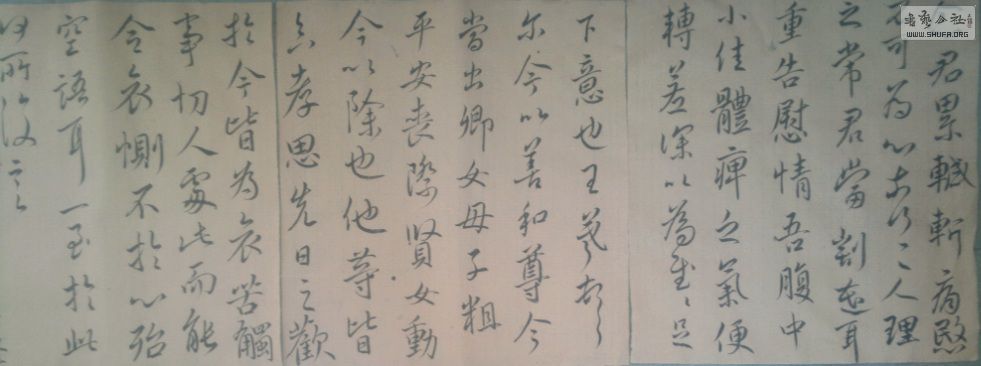 君累輒斬病
不可為心 人理
之常君當割遣耳
重告慰情吾腹中
小佳體痺之氣便
轉差深以為足
下意也王羲
尔今以善和尊今
當出卿女母子粗
平安喪際賢女動
今以除也他尊皆
孝思先日之歡
於今皆為哀苦觸
事切人處此而能
令哀惻不於心殆
空語耳一至於此
何所復言
書藝公社
WWW.SHUFA.ORG